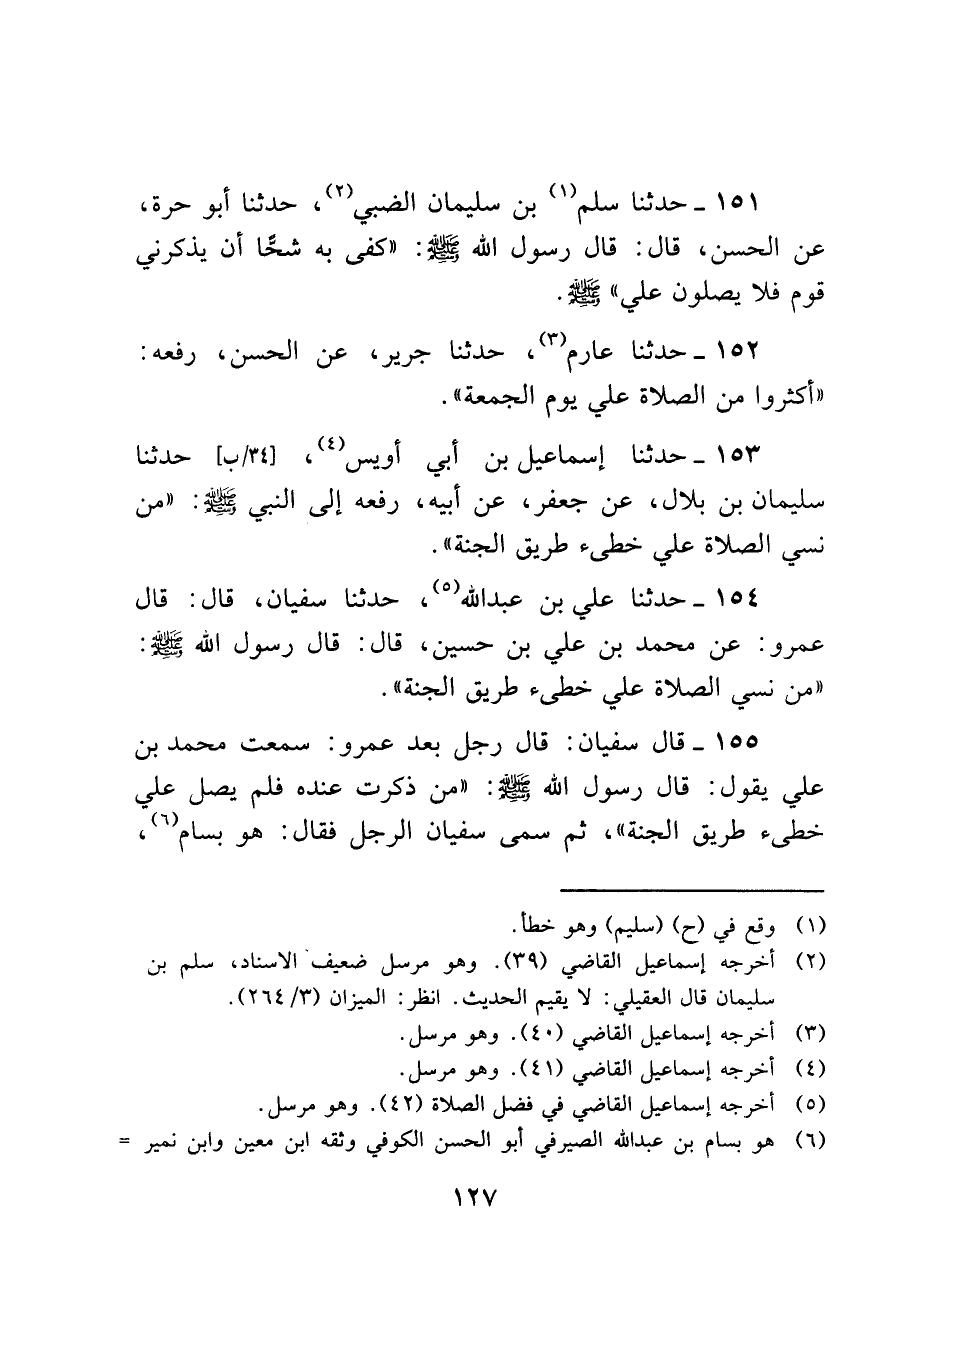 ١٥١ ـ حدثنا سلم(١) بن سليمان الضبي(٢)، حدثنا أبو حرة،
عن الحسن، قال: قال رسول الله ﷺ: «كفى به شحًّا أن يذكرني
قوم فلا يصلون علي» ﷺ.
١٥٢ ـ حدثنا عارم(٣)، حدثنا جرير، عن الحسن، رفعه:
«أكثروا من الصلاة علي يوم الجمعة».
١٥٣ ـ حدثنا إسماعيل بن أبي أويس(٤)، [٣٤/ب] حدثنا
سليمان بن بلال، عن جعفر، عن أبيه، رفعه إلى النبي ﷺ: «من
نسي الصلاة علي خطىء طريق الجنة».
١٥٤ ـ حدثنا علي بن عبدالله(٥)، حدثنا سفيان، قال: قال
عمرو: عن محمد بن علي بن حسين، قال: قال رسول الله ﷺ:
«من نسي الصلاة علي خطىء طريق الجنة».
١٥٥ ـ قال سفيان: قال رجل بعد عمرو: سمعت محمد بن
علي يقول: قال رسول الله ﷺ: «من ذكرت عنده فلم يصل علي
خطىء طريق الجنة»، ثم سمى سفيان الرجل فقال: هو بسام(٦)،
(١) وقع في (ح) (سليم) وهو خطأ.
(٢) أخرجه إسماعيل القاضي (٣٩). وهو مرسل ضعيف الاسناد، سلم بن
سليمان قال العقيلي: لا يقيم الحديث. انظر: الميزان (٣/ ٢٦٤).
(٣) أخرجه إسماعيل القاضي (٤٠). وهو مرسل.
(٤) أخرجه إسماعيل القاضي (٤١). وهو مرسل.
(٥) أخرجه إسماعيل القاضي في فضل الصلاة (٤٢). وهو مرسل.
(٦) هو بسام بن عبدالله الصيرفي أبو الحسن الكوفي وثقه ابن معين وابن نمير =
١٢٧